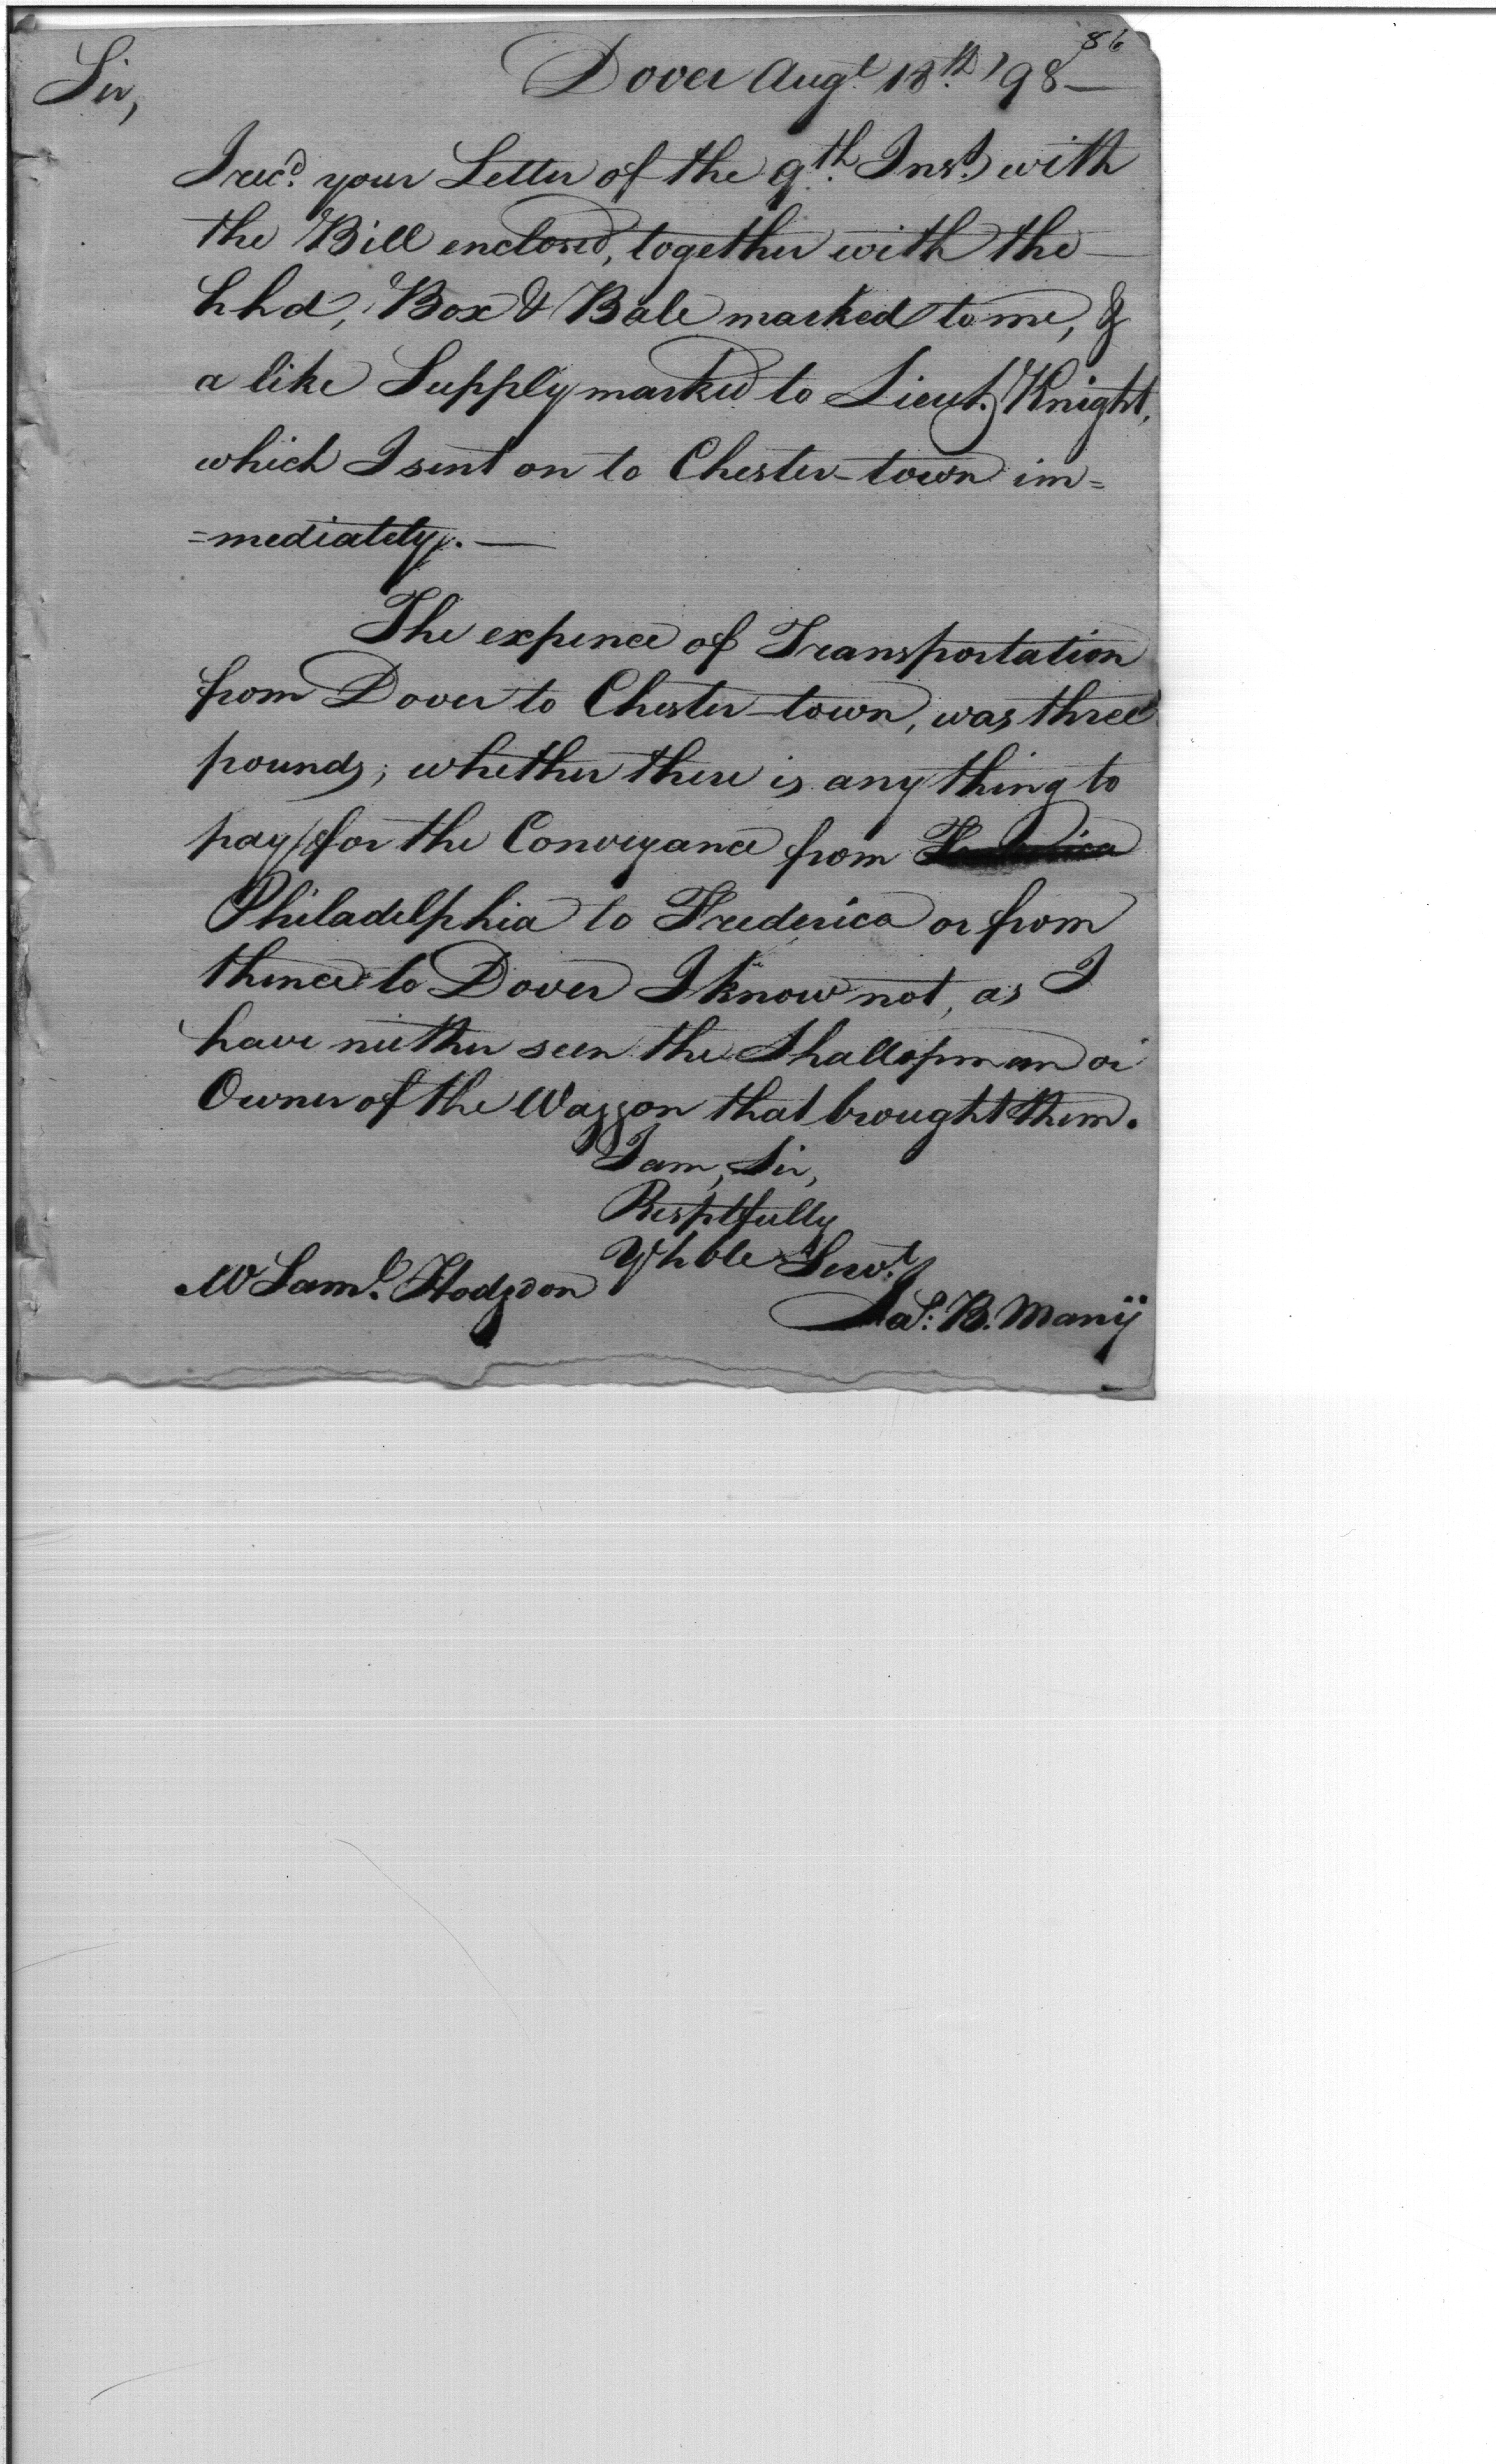 86
Dover Augt. 18th. '98—
Sir,
I recd. your Letter of the 9th. Inst. with
the Bill enclosed, together with the—
hhd, Box & Bale marked to me, &
a like Supply marked to Lieut. Knight,
which I sent on to Chester-town im=
=mediately.—
The expence of Transportation
from Dover to Chester-town, was three
pounds; whether there is any thing to
pay for the Conveyance from Frederica
Philadelphia to Frederica or from
thence to Dover I know not, as I
have neither seen the Shallopman or
Owner of the Waggon that brought them.
I am, Sir,
Resptfully
Yr hble Servt.
Mr Saml. Hodgdon
Jas: B. Many